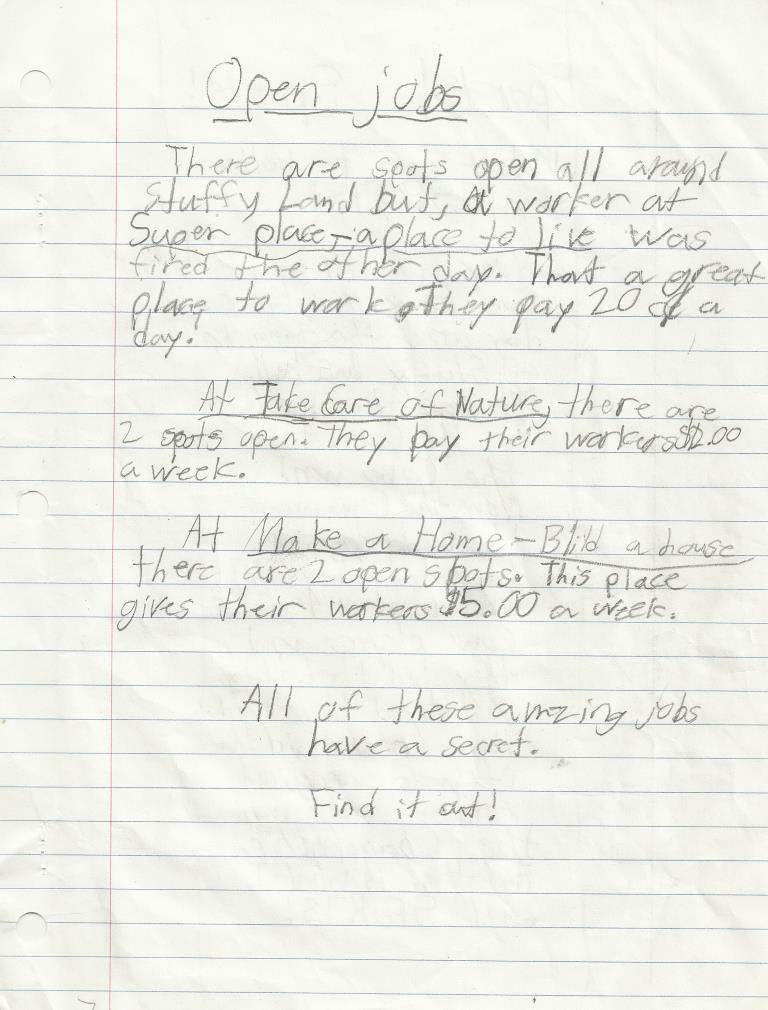 Open jobs
There are spots open all around
Stuffy Land but, a worker at
Super place - a place to live was
fired the other day. That a great
place to work. They pay 20 ¢ a
day.
At Take Care of Nature, there are
2 spots open. They pay their workers $2.00
a week.
At Make a Home - Blild a house
there are 2 open spots. This place
gives their workers $5.00 a week.
All of these amzing jobs
have a secret.
Find it out!